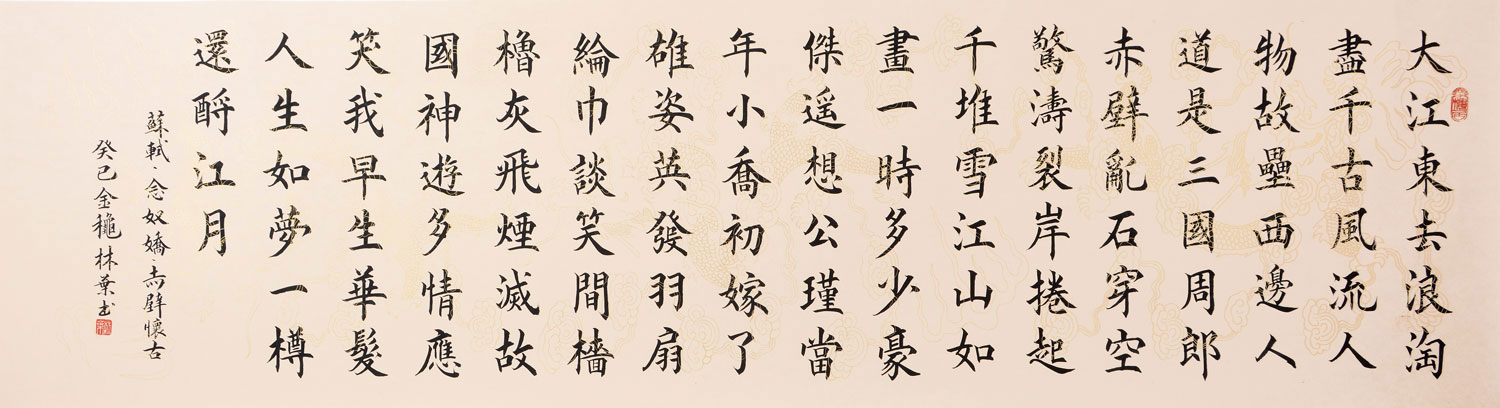 大江東去浪淘
盡千古風流人
物故壘西邊人
道是三國周郎
赤壁亂石穿空
驚濤裂岸捲起
千堆雪江山如
畫一時多少豪
傑遥想公瑾當
年小喬初嫁了
雄姿英發羽扇
綸巾談笑間檣
櫓灰飛煙滅故
國神遊多情應
笑我早生華髮
人生如夢一樽
還酹江月
蘇軾·念奴嬌赤壁懷古
癸巳金穐林葉书